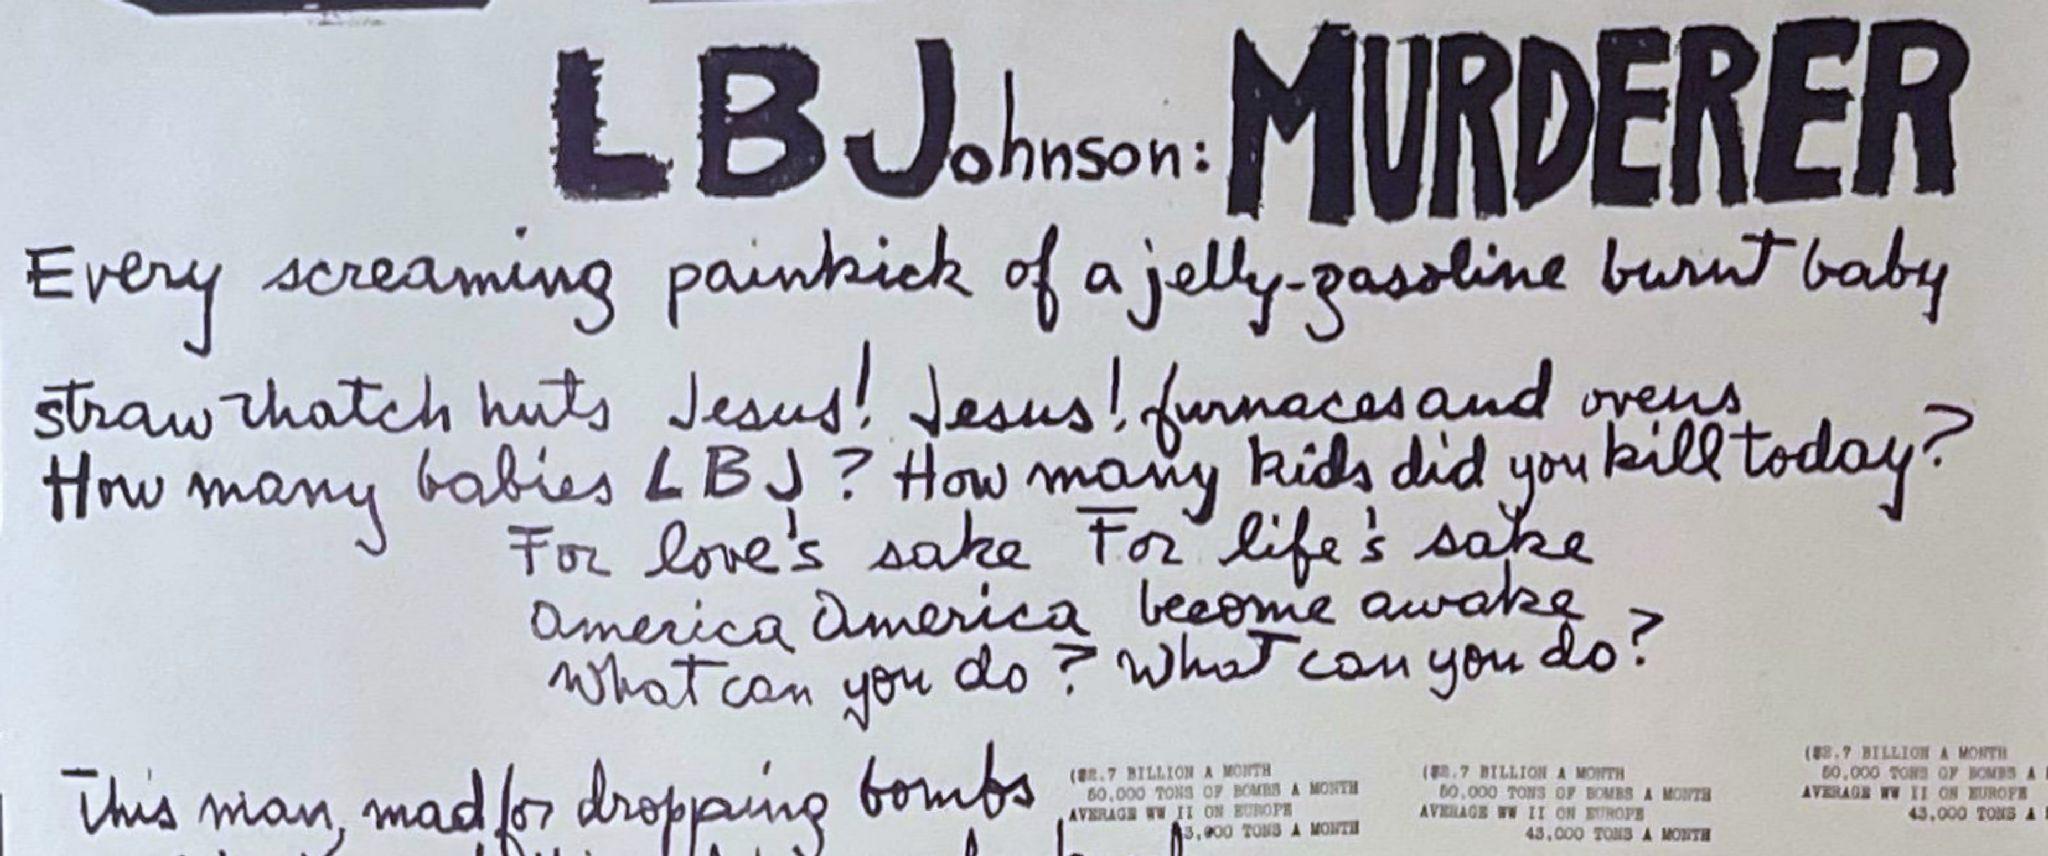 LBJohnson: MURDERER
Every screaming painkick of a jelly-gasoline burnt baby
straw thatch huts Jesus! Jesus! furnaces and ovens
How many babies LBJ? How many kids did you kill today?
For love's sake For life's sake
america america become awake
What can you do? What can you do?
This man, mad for dropping bombs
($2.7 BILLION A MONTH
50,000 TONS OF BOMBS A MONTH
AVERAGE WW II ON EUROPE
43,000 TONS A MONTH
($2.7 BILLION A MONTH
50,000 TONS OF BOMBS A MONTH
AVERAGE WW II ON EUROPE
43,000 TONS A MONTH
($2.7 BILLION A MONTH
50,000 TONS OF BOMBS A
AVERAGE WW II ON EUROPE
43,000 TONS A